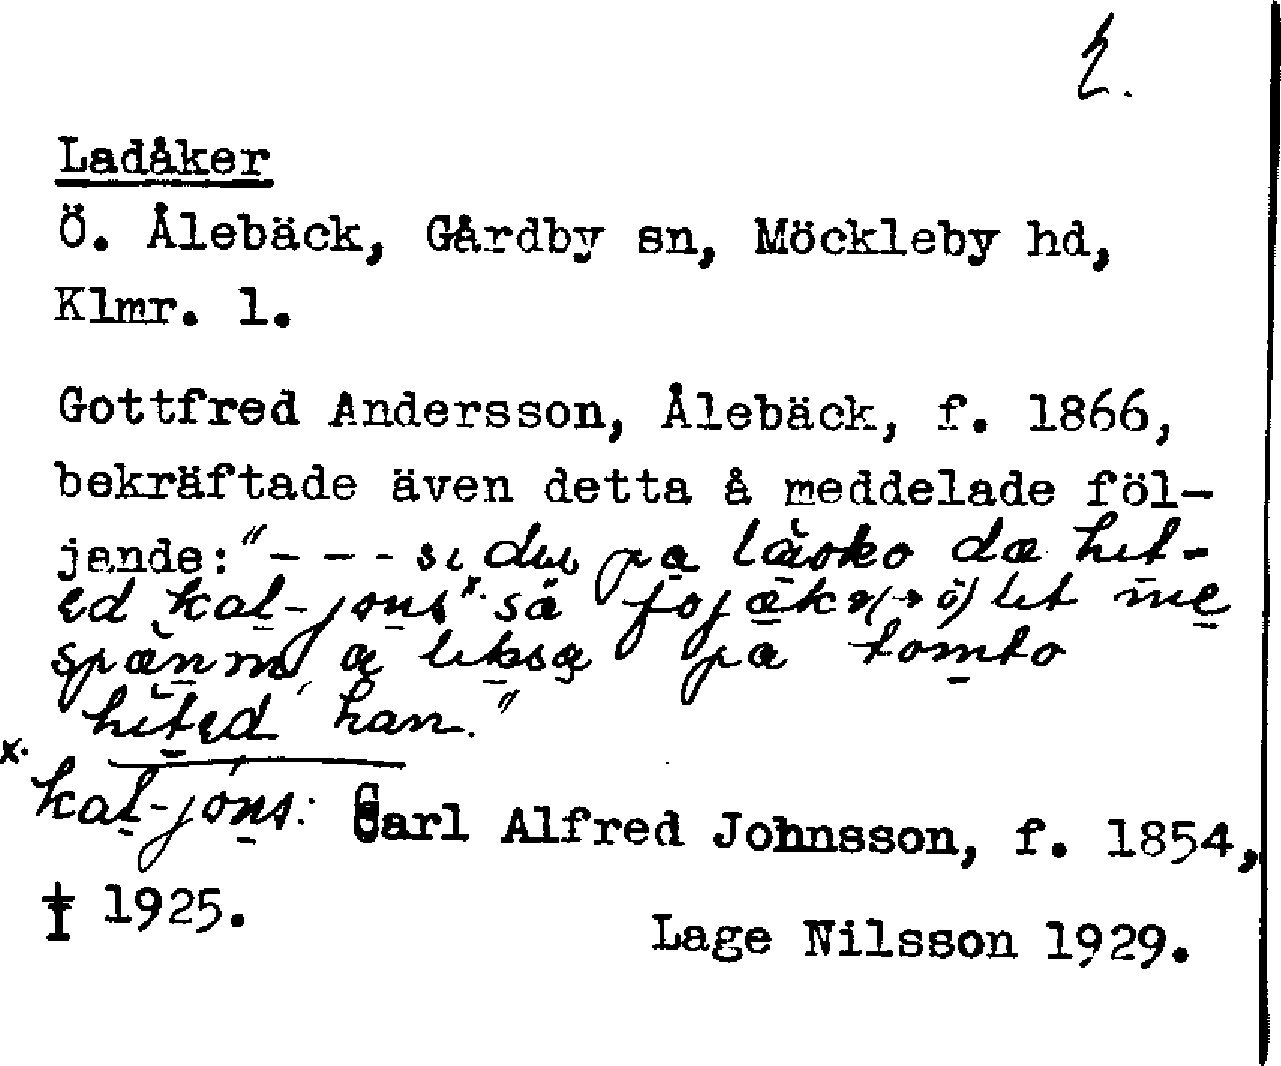 2.
Ladåker
Ö. Ålebäck, Gårdby sn, Möckleby hd,
Klmr. l.
Gottfred Andersson, Ålebäck, f. 1866,
bekräftade även detta å meddelade föl-
jande: "- - - si du, pa låoko dæ hit-
ed kal-jons x. så let me
a på tomto
hited han."
x. kal-jons: Carl Alfred Johnsson, f. 1854,
† 1925.
Lage Nilsson 1929.